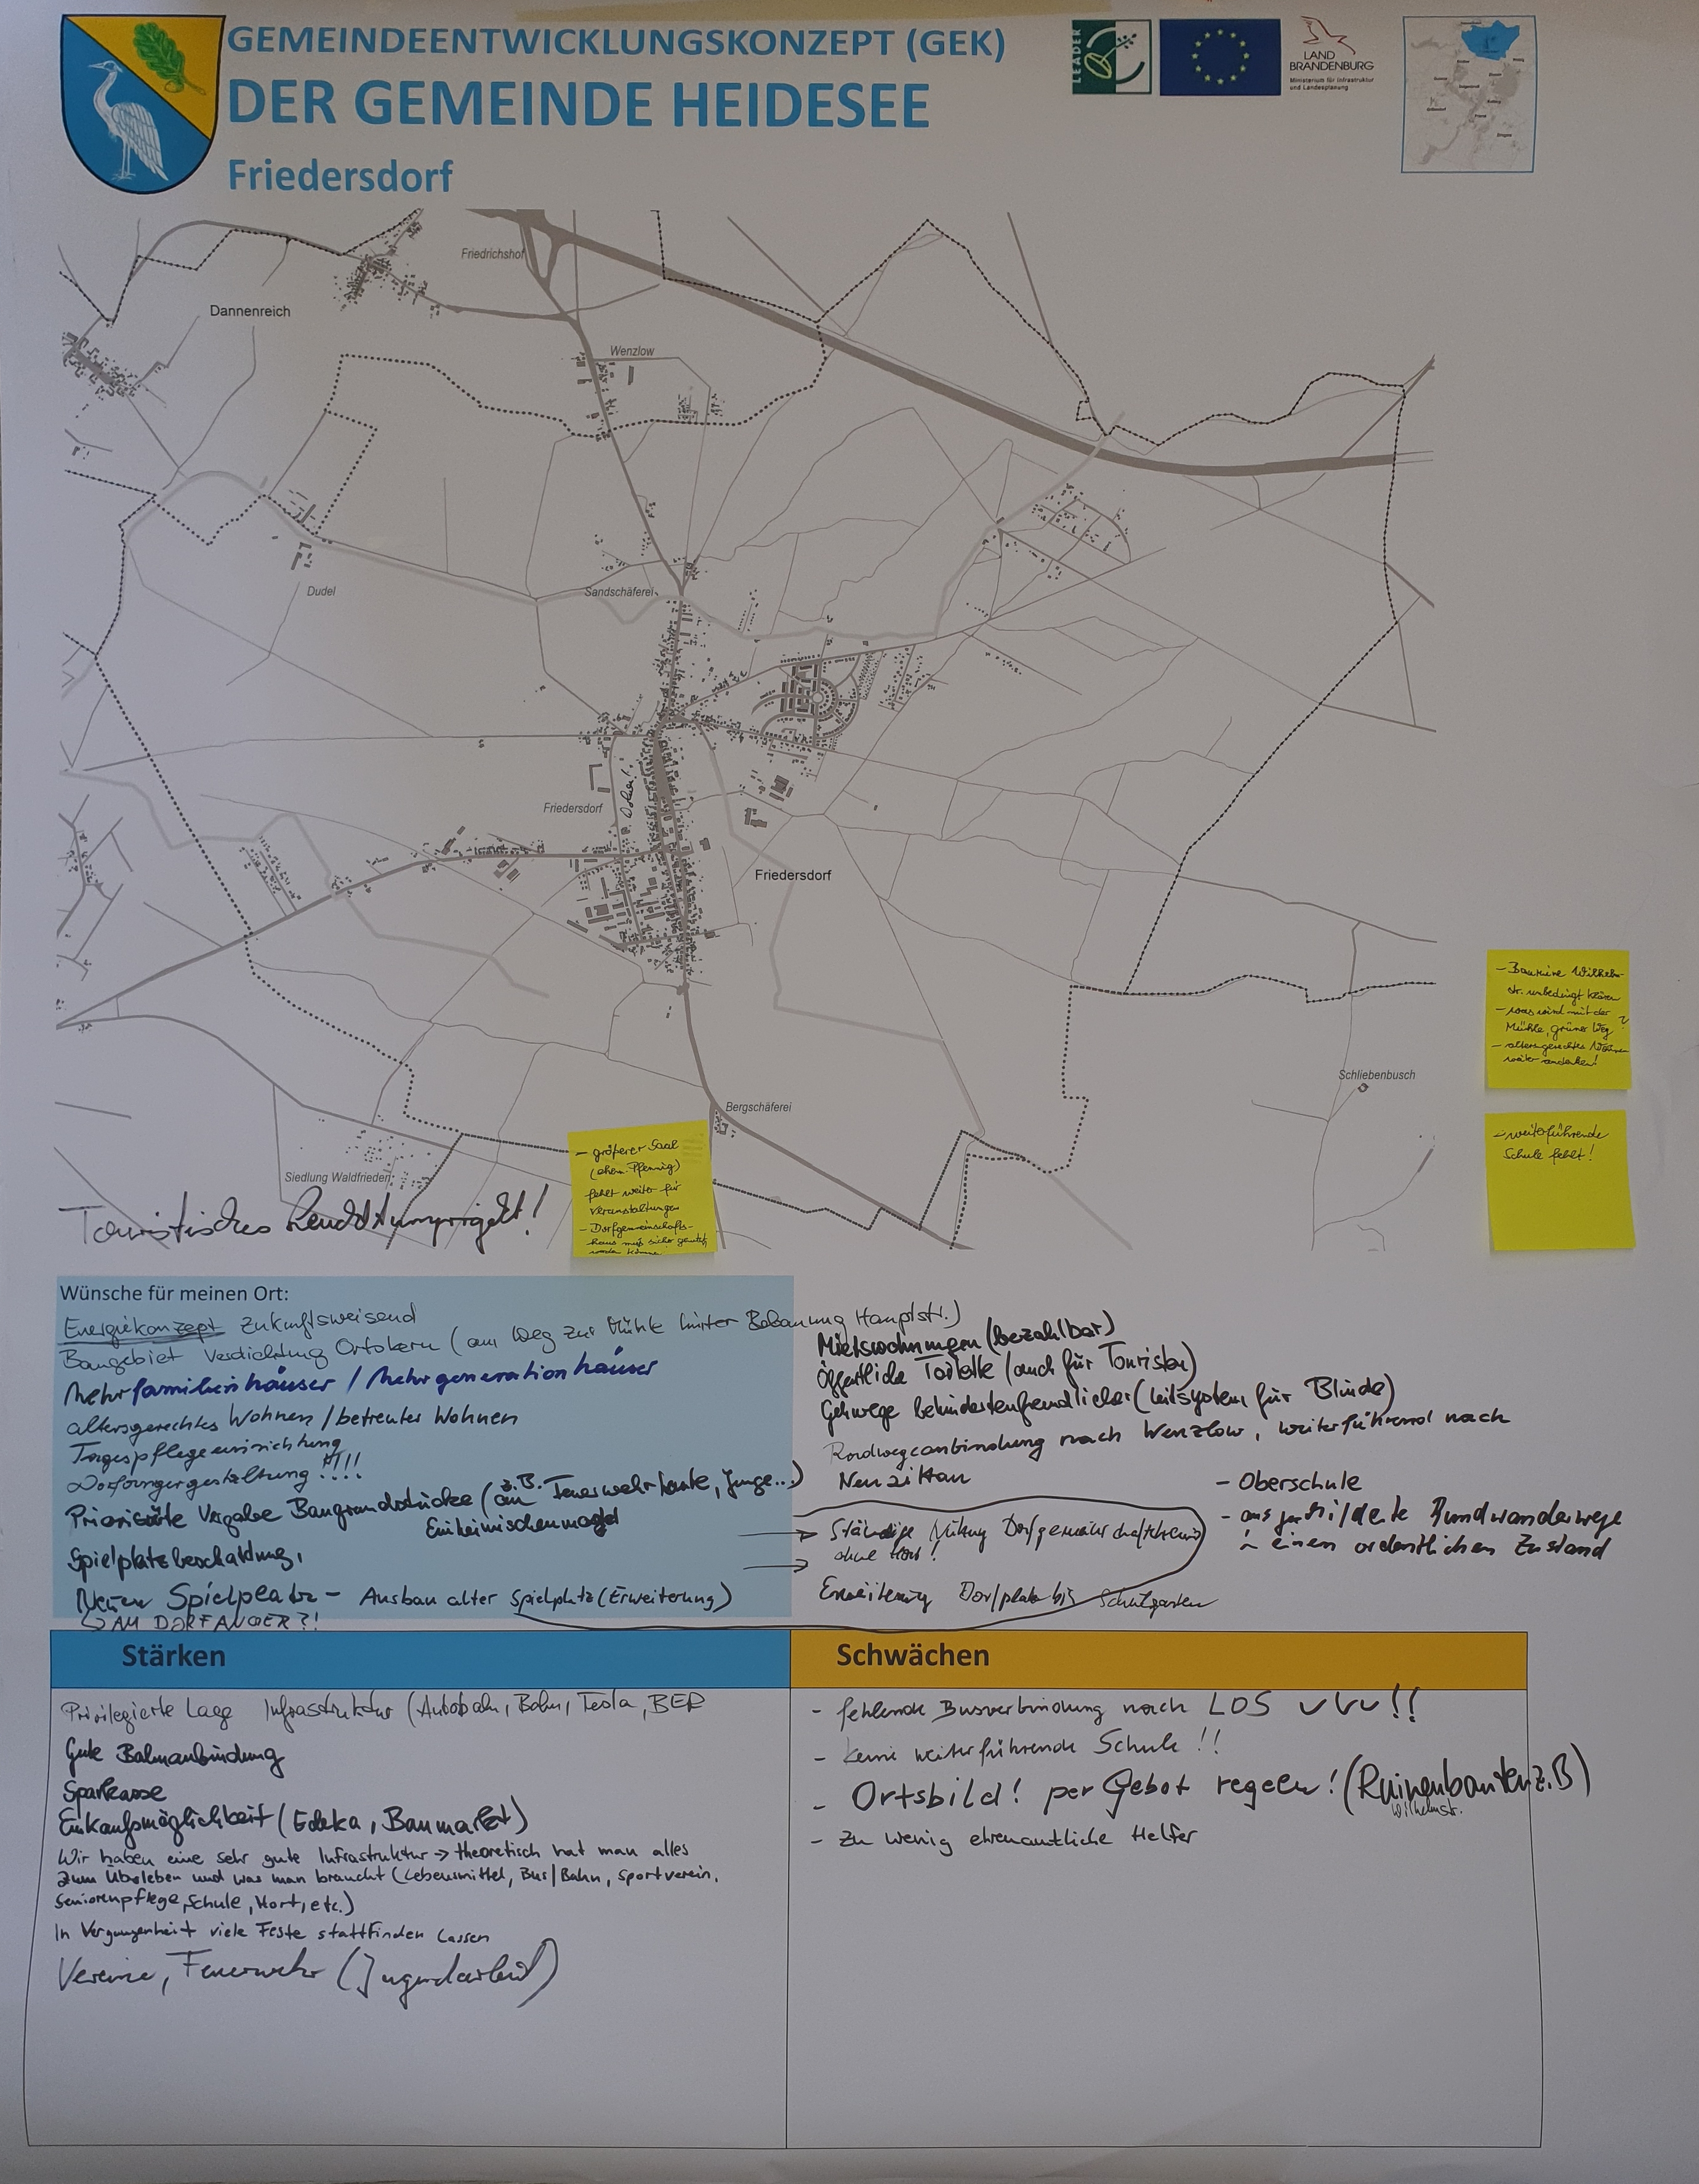 GEMEINDEENTWICKLUNGSKONZEPT (GEK)
DER GEMEINDE HEIDESEE
Friedersdorf
LEADER
LAND
BRANDENBURG
Ministerium für Infrastruktur
und Landesplanung
Friedrichshof
Dannenreich
Wenzlow
Dudel
Sandschäferei
Friedersdorf
Friedersdorf
Schliebenbusch
Bergschäferei
Siedlung Waldfrieden
- Bauruine Wilhelm-
str. unbedingt klären
- was wird mit der
Mühle, grüner Weg ?
- altersgerechtes Wohnen
weiter andenken!
- weiterführende
Schule fehlt!
- größerer Saal
(ehem. Pfennig)
fehlt weiter für
Veranstaltungen
- Dorfgemeinschafts-
haus muß sicher genutzt
werden können
Touristisches Leuchtturmprojekt!
Wünsche für meinen Ort:
Energiekonzept zukunftsweisend
Baugebiet Verdichtung Ortskern (am Weg zur Mühle hinter Bebauung Hauptstr.)
Mehrfamilienhäuser / Mehrgenerationhäuser
altersgerechtes Wohnen / betreutes Wohnen
Tagespflegeeinrichtung
Dorfangergestaltung !!!!
Priorisierte Vergabe Baugrundstücke (z.B. an Feuerwehrleute, junge...)
Einheimischenmodell
Spielplatzbeschattung,
Neuer Spielplatz - Ausbau alter Spielplatz (Erweiterung)
AM DORFANGER?!
Mietswohnungen (bezahlbar)
Öffentliche Toilette (auch für Touristen)
Gehwege behindertenfreundlicher (Leitsystem für Blinde)
Radweganbindung nach Wenzlow, weiterführend nach
Neu Zittau
Ständige Nutzung Dorfgemeinschaftshaus
ohne Hort!
Erweiterung Dorfplatz bis Schulgarten
- Oberschule
- ausgeschilderte Rundwanderwege
in einen ordentlichen Zustand
Stärken
Privilegierte Lage Infrastruktur (Autobahn, Bahn, Tesla, BER
Gute Bahnanbindung
Sparkasse
Einkaufsmöglichkeit (Edeka, Baumarkt)
Wir haben eine sehr gute Infrastruktur → theoretisch hat man alles
zum Überleben und was man braucht (Lebensmittel, Bus/Bahn, Sportverein,
Seniorenpflege, Schule, Hort, etc.)
In Vergangenheit viele Feste stattfinden lassen
Vereine, Feuerwehr (Jugendarbeit)
Schwächen
- fehlende Busverbindung nach LOS !!
- keine weiterführende Schule !!
- Ortsbild! per Gebot regeln! (Ruinenbauten z.B)
Wilhelmstr.
- Zu wenig ehrenamtliche Helfer